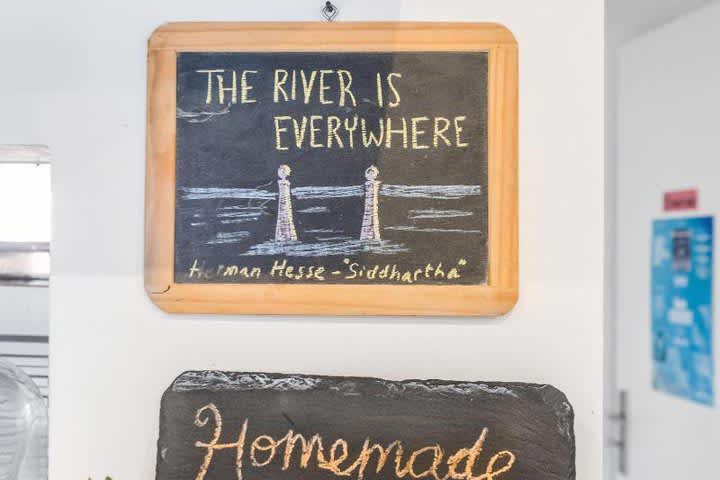 THE RIVER IS
EVERYWHERE
Herman Hesse - "Siddhartha"
Homemade